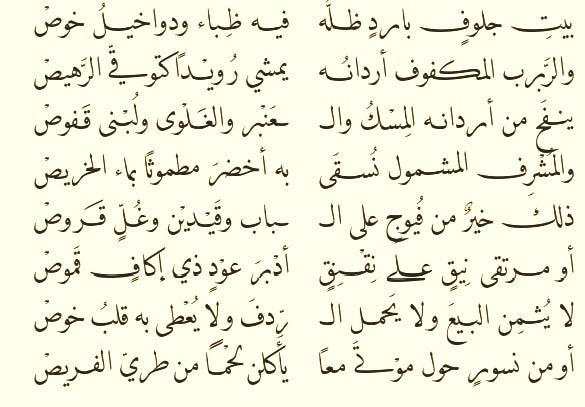 بيتِ جلوفٍ باردٍ ظلُّه فيه ظِباء ودواخيلُ خوصْ
والرَّبرب المكفوف أردانُه يمشي رُويْدًا كتوقّي الرَّهيصْ
ينفَح من أردانه المِسْكُ والـ ـعَنْبر والغَلْوى ولُبْنى قَفوصْ
والمُشْرِف المشمول نُسقَى به أخضرَ مطموثًا بماء الخريصْ
ذلك خيرٌ من فُيوجٍ على الـ ـباب وقَيْدَيْن وغُلٍّ قَروصْ
أو مرتقى نِيقٍ على نِقْنِقٍ أدْبرَ عوْدٍ ذي إكافٍ قَموصْ
لا يُثمِن البيعَ ولا يَحمل الـ ـرِّدفَ ولا يُعْطى به قلبُ خوصْ
أو من نسورٍ حول موْتَى معًا يأكلن لحْمًا من طريّ الفريصْ